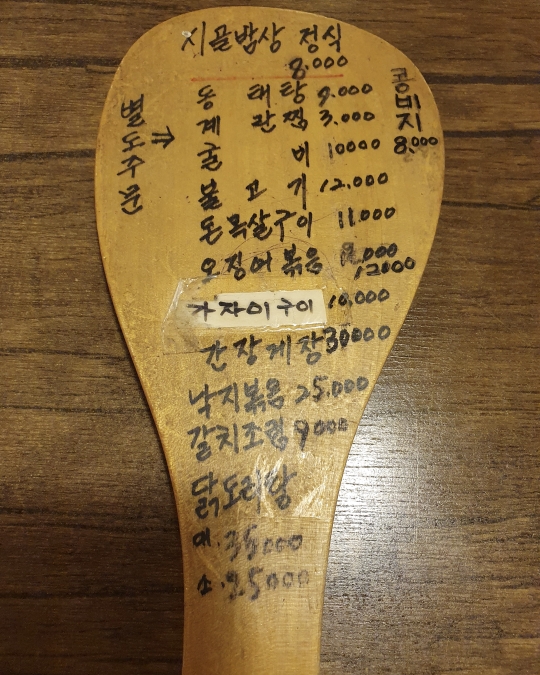 시골밥상 정식
8.000
별도주문
⇒
동태탕 9.000
계란찜 3.000
굴비 10000
불고기 12.000
돈목살구이 11.000
오징어볶음
12000
가자미구이 10.000
간장게장 30000
낙지볶음 25.000
갈치조림 9000
닭도리탕
대. 35000
소. 25000
콩비지
8.000